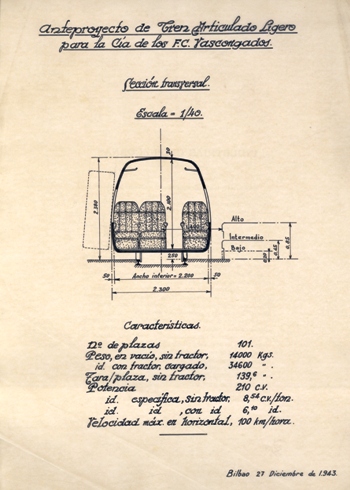 Anteproyecto de Tren Articulado Ligero
para la Cía de los F.C. Vascongados.
Sección transversal.
Escala = 1/40.
Alto
Intermedio
Bajo
2.300
50
Ancho interior = 2.200
50
2.300
Características.
Nº de plazas 101.
Peso, en vacío, sin tractor, 14000 Kgs.
id. con tractor, cargado, 34600 " .
Tara/plaza, sin tractor, 139,6 " .
Potencia 210 c.v.
id. específica, sin tractor, 8,54 c.v/ton.
id. id , con id 6,10 id.
Velocidad máx. en horizontal, 100 km/hora.
Bilbao 27 Diciembre de 1.943.